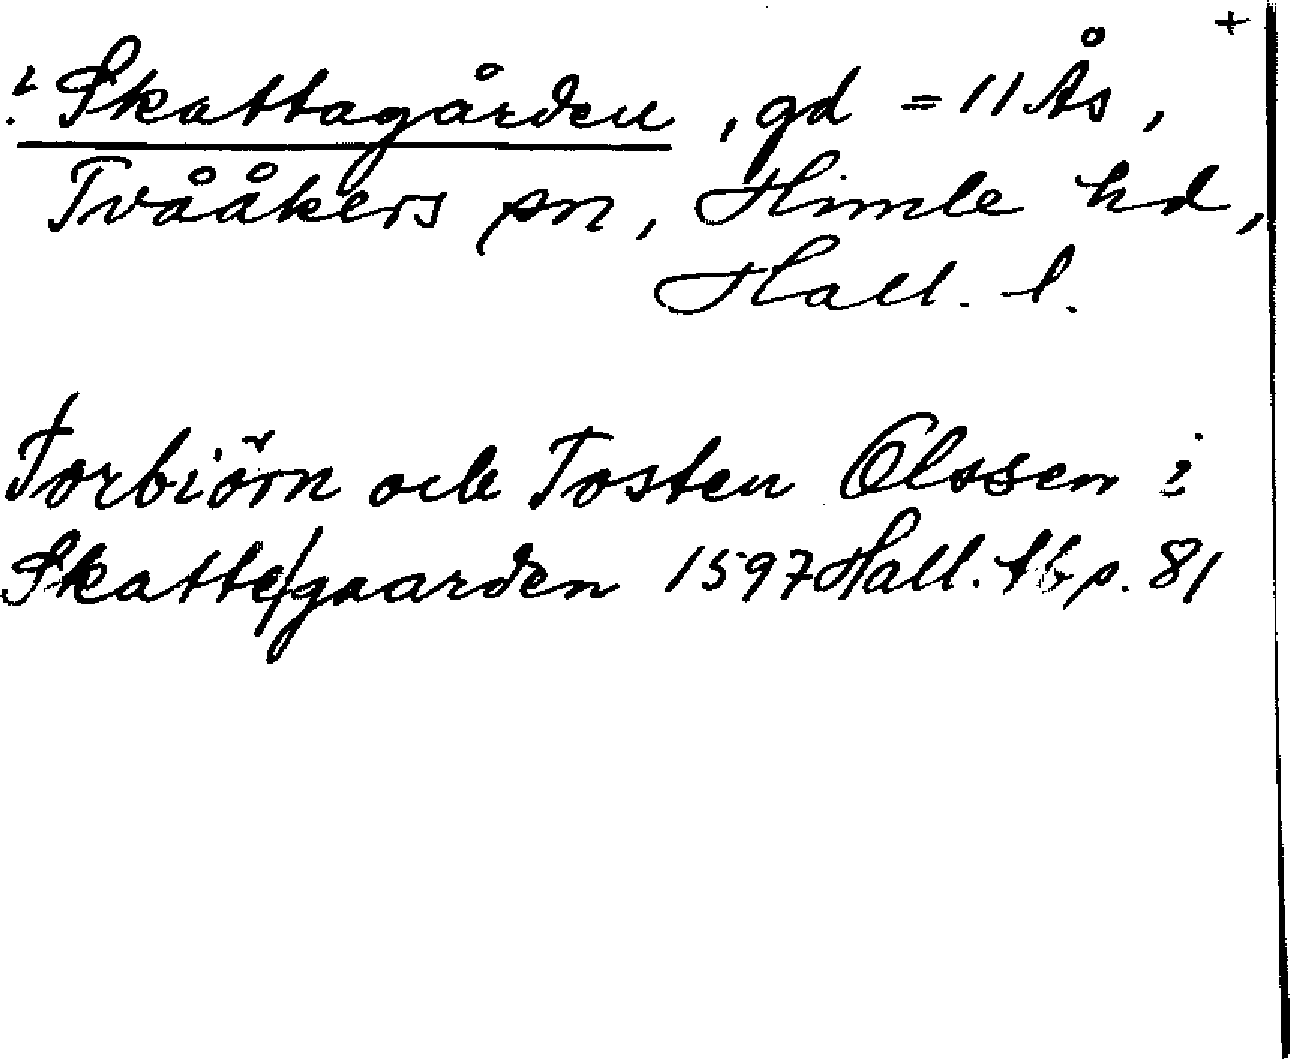 +
: Skattagården, gd = 11 Ås,
Tvååkers sn, Himle hd,
Hall. l.
Torbiörn och Tosten Olssen i
Skatte/gaarden 1597 Hall. tb p. 81